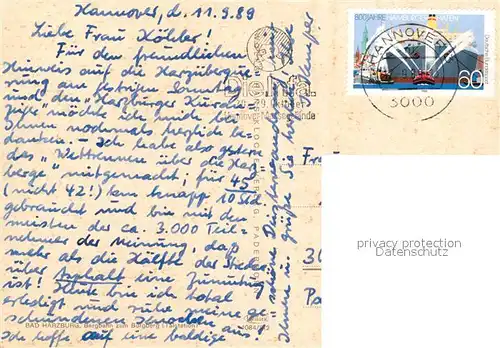 Hannover, d. 11.9.89
Liebe Frau Köhler!
Für den freundlichen
Hinweis auf die Harzüberque-
rung am festrigen Sonntag
und den "Harzburger Kuran-
zeiger" möchte ich mich bei
Ihnen nochmals herzlich be-
danken. – Ich habe also gestern
das "Wettrennen über die Harz-
berge" mitgemacht; für 45
(nicht 42!) km knapp 10 Std.
gebraucht und bin mit den
meisten der ca. 3.000 Teil-
nehmer der Meinung, daß
mehr als die Hälfte der Strecke
über Asphalt eine Zumutung
ist! Heute bin ich total
erledigt und ruhe meine ge-
schundenen Knochen aus!
Ich hoffe auf eine baldige
Ihnen u. grüße Sie
BAD HARZBURG, Bergbahn zum Burgberg (Talstation)
KLOCKE PADERBORN
29. Oktober
Hannover Messegelände
Fra
30
Pa
800 JAHRE HAMBURGER HAFEN
60
HANNOVER
3000
privacy protection
Datenschutz